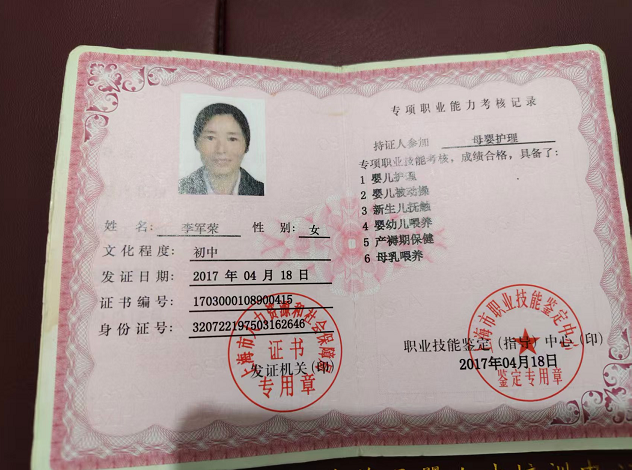 姓 名: 李军荣 性 别: 女
文化程度: 初中
发证日期: 2017 年 04 月 18 日
证书编号: 1703000108900415
身份证号: 320722197503162646
上海市人力资源和社会保障局
证书
发证机关(印)
专用章
专项职业能力考核记录
持证人参加 母婴护理
专项职业技能考核,成绩合格,具备了:
1 婴儿护理
2 婴儿被动操
3 新生儿抚触
4 婴幼儿喂养
5 产褥期保健
6 母乳喂养
上海市职业技能鉴定中心
职业技能鉴定(指导)中心(印)
2017年04月18日
鉴定专用章